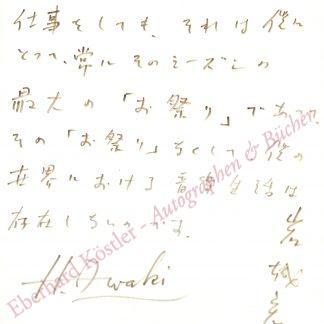 仕事をしても、それは僕に
とって、常にそのシーズンの
最大の「お祭り」であ
その「お祭り」なくして、僕の
世界における音楽生活は
存在しない
H. Iwaki
岩城宏
Eberhard Köstler - Autographen & Bücher